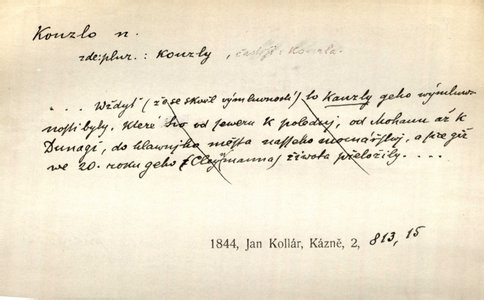 Kouzlo n.
zde: plur.: kouzly, častěji: kouzla.
. . . Wždyť (že se skwěl výmluwností) to Kauzly geho wýmluw-
nosti byly, které ho od seweru k poledni, od Mohanu až k
Dunagi, do hlawnjho města nasseho mocnářstwj, a to giž
we 20. roku geho (Cleymanna) žiwota přeložily. . . .
1844, Jan Kollár, Kázně, 2, 813, 15